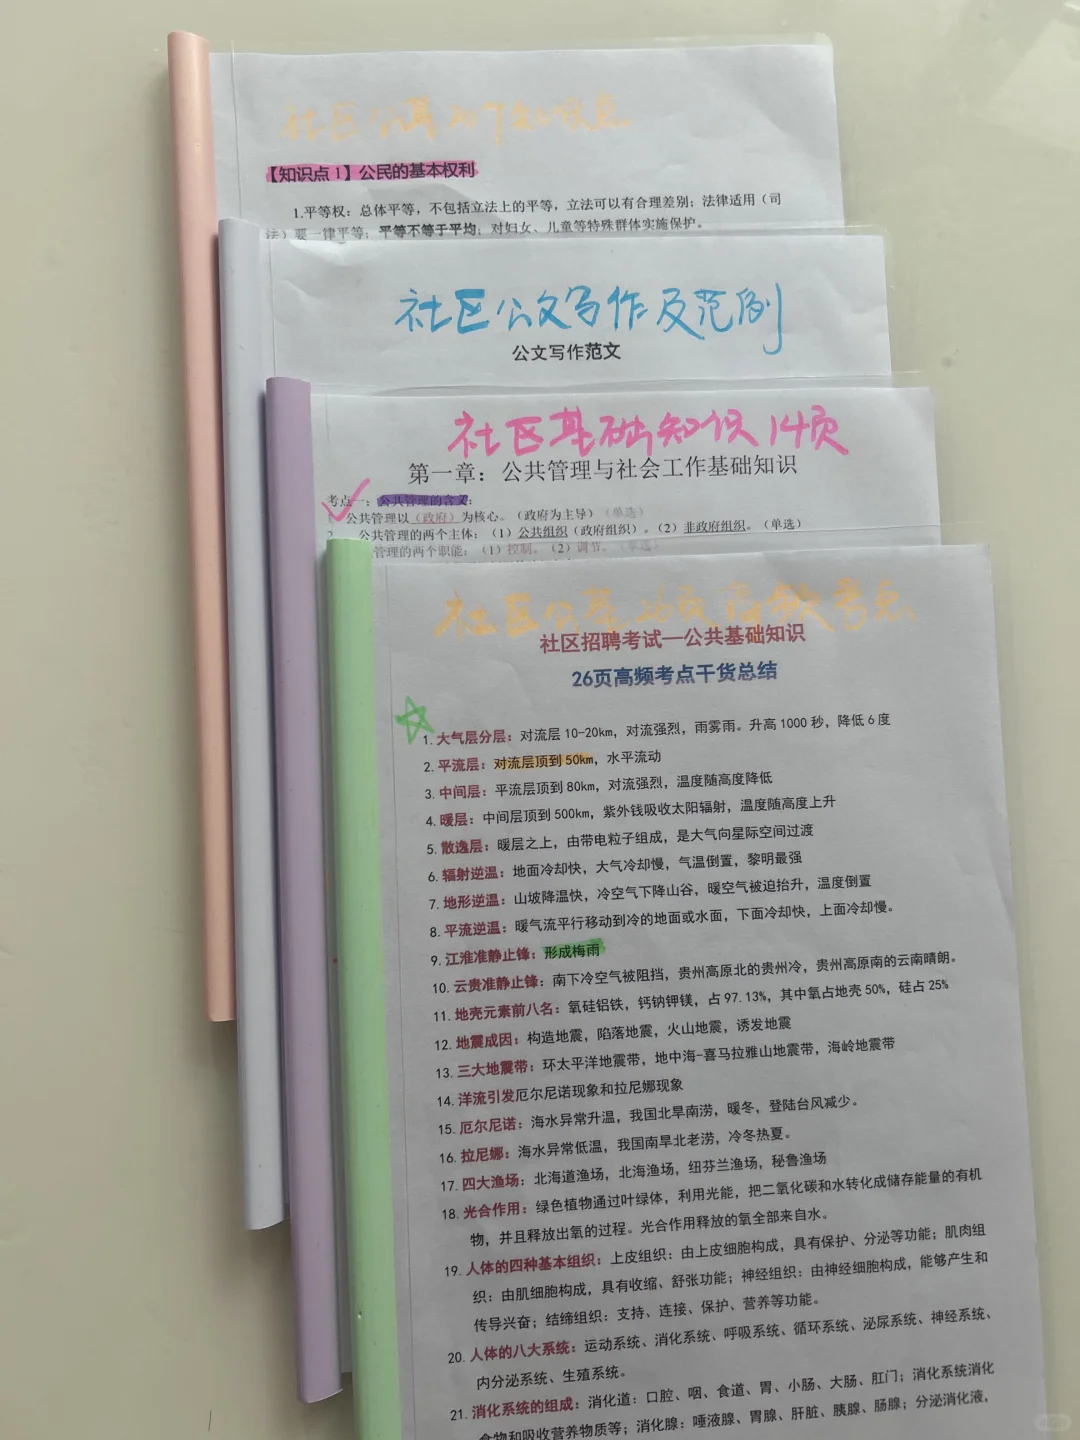 社区公基 知识点
【知识点 1】公民的基本权利
1.平等权：总体平等，不包括立法上的平等，立法可以有合理差别；法律适用（司
法）要一律平等；平等不等于平均；对妇女、儿童等特殊群体实施保护。
社区公文写作及范例
公文写作范文
社区基础知识 14页
第一章：公共管理与社会工作基础知识
考点一：公共管理的含义：
公共管理以（政府）为核心。（政府为主导）（单选）
2. 公共管理的两个主体：（1）公共组织（政府组织）。（2）非政府组织。（单选）
管理的两个职能：（1）控制。（2）调节。（单选）
社区公基 26页高频考点
社区招聘考试—公共基础知识
26页高频考点干货总结
1. 大气层分层：对流层 10-20km，对流强烈，雨雾雨。升高 1000 秒，降低 6 度
2. 平流层：对流层顶到 50km，水平流动
3. 中间层：平流层顶到 80km，对流强烈，温度随高度降低
4. 暖层：中间层顶到 500km，紫外钱吸收太阳辐射，温度随高度上升
5. 散逸层：暖层之上，由带电粒子组成，是大气向星际空间过渡
6. 辐射逆温：地面冷却快，大气冷却慢，气温倒置，黎明最强
7. 地形逆温：山坡降温快，冷空气下降山谷，暖空气被迫抬升，温度倒置
8. 平流逆温：暖气流平行移动到冷的地面或水面，下面冷却快，上面冷却慢。
9. 江淮准静止锋：形成梅雨
10. 云贵准静止锋：南下冷空气被阻挡，贵州高原北的贵州冷，贵州高原南的云南晴朗。
11. 地壳元素前八名：氧硅铝铁，钙钠钾镁，占 97.13%，其中氧占地壳 50%，硅占 25%
12. 地震成因：构造地震，陷落地震，火山地震，诱发地震
13. 三大地震带：环太平洋地震带，地中海-喜马拉雅山地震带，海岭地震带
14. 洋流引发厄尔尼诺现象和拉尼娜现象
15. 厄尔尼诺：海水异常升温，我国北旱南涝，暖冬，登陆台风减少。
16. 拉尼娜：海水异常低温，我国南旱北老涝，冷冬热夏。
17. 四大渔场：北海道渔场，北海渔场，纽芬兰渔场，秘鲁渔场
18. 光合作用：绿色植物通过叶绿体，利用光能，把二氧化碳和水转化成储存能量的有机
物，并且释放出氧的过程。光合作用释放的氧全部来自水。
19. 人体的四种基本组织：上皮组织：由上皮细胞构成，具有保护、分泌等功能；肌肉组
织：由肌细胞构成，具有收缩、舒张功能；神经组织：由神经细胞构成，能够产生和
传导兴奋；结缔组织：支持、连接、保护、营养等功能。
20. 人体的八大系统：运动系统、消化系统、呼吸系统、循环系统、泌尿系统、神经系统、
内分泌系统、生殖系统。
21. 消化系统的组成：消化道：口腔、咽、食道、胃、小肠、大肠、肛门；消化系统消化
食物和吸收营养物质等；消化腺：唾液腺、胃腺、肝脏、胰腺、肠腺；分泌消化液，